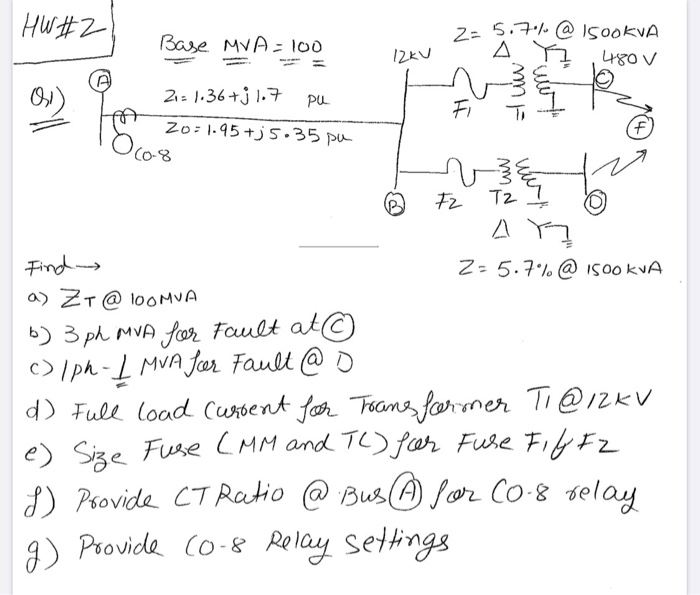 HW#2
Base MVA = 100
Z= 5.7% @ 1500KVA
12KV
Δ Y
480 V
A
Q1)
Z1= 1.36+j 1.7 pu
Z0= 1.95+j5.35 pu
CO-8
F1
T1
C
F
B
F2
T2
D
Δ Y
Z= 5.7% @ 1500KVA
Find →
a) ZT @ 100MVA
b) 3 ph MVA for Fault at C
c) 1ph-⏚ MVA for Fault @ D
d) Full load Current for Transformer T1 @ 12KV
e) Size Fuse (MM and TC) for Fuse F1 & F2
f) Provide CT Ratio @ Bus A for CO-8 relay
g) Provide CO-8 Relay settings